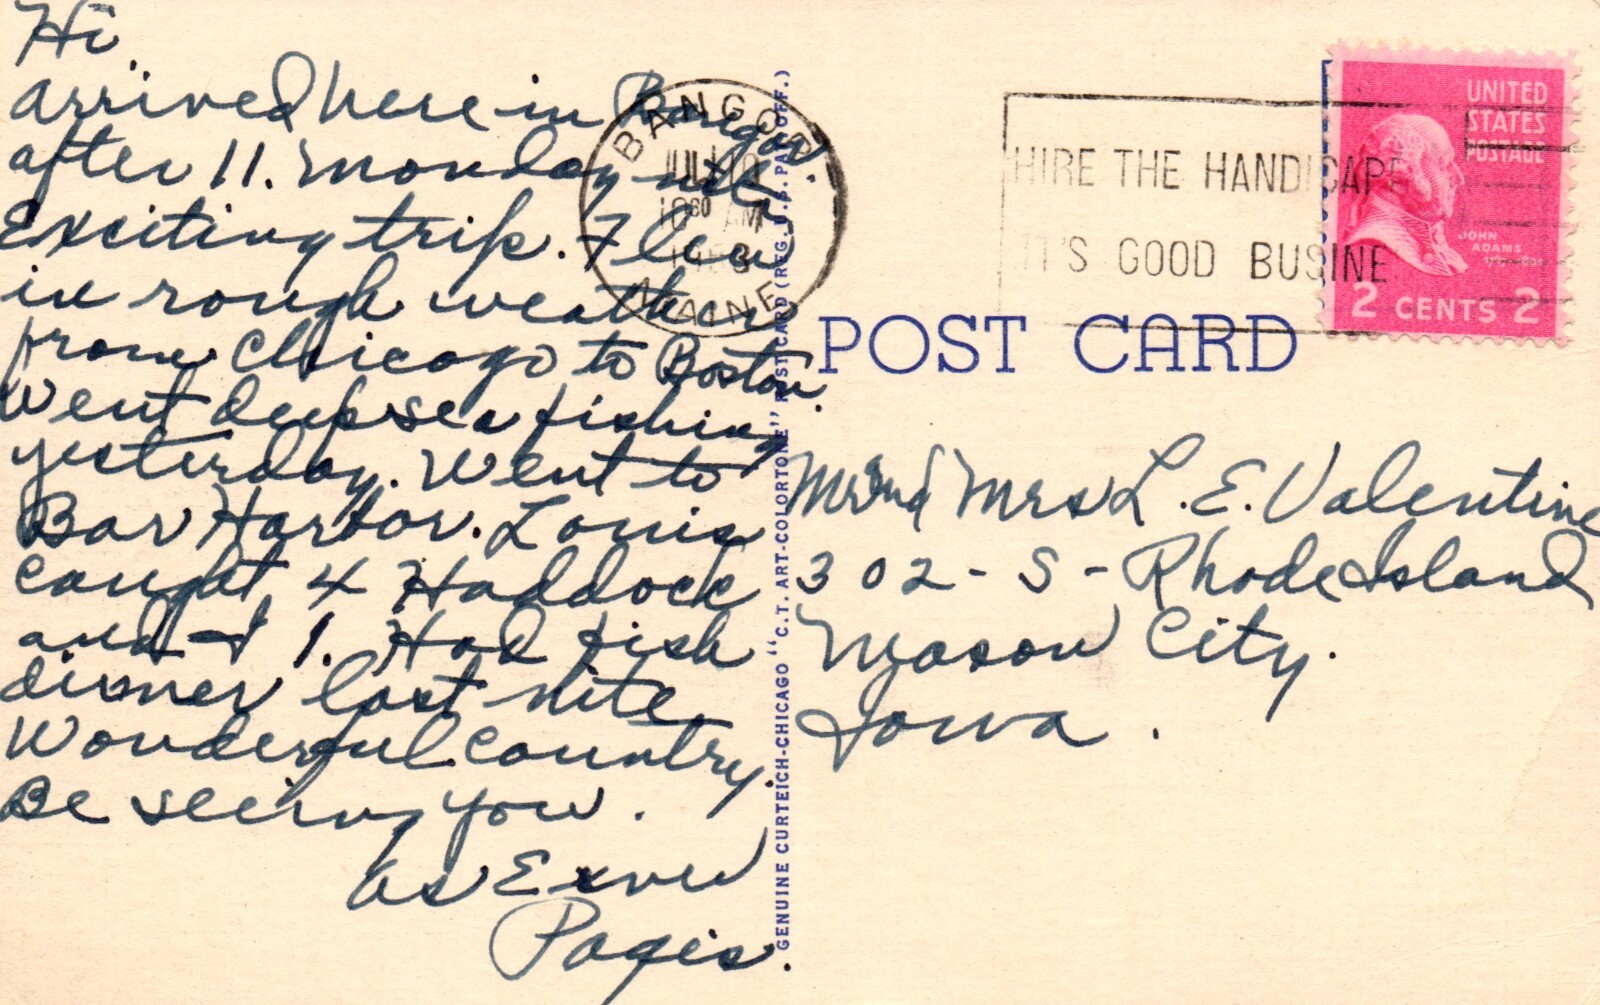 Hi.
arrived here in Bangor.
after 11. Monday nite
Exciting trip. Flew
in rough weather
from Chicago to Boston.
Went deep sea fishing
yesterday. Went to
Bar Harbor. Louis
caught 4 Haddock
and I 1. Had fish
dinner last nite.
Wonderful country.
Be seeing you.
as Ever
Pagis.
BANGOR
JUL
10 AM
MAINE
GENUINE CURTEICH-CHICAGO "C.T. ART-COLORTONE" POST CARD (REG. U.S. PAT. OFF.)
HIRE THE HANDICAPP
IT'S GOOD BUSINE
UNITED
STATES
POSTAGE
JOHN
ADAMS
2 CENTS 2
POST CARD
Mr and Mrs L. E. Valentine
302 - S - Rhode Island
Mason City.
Iowa.